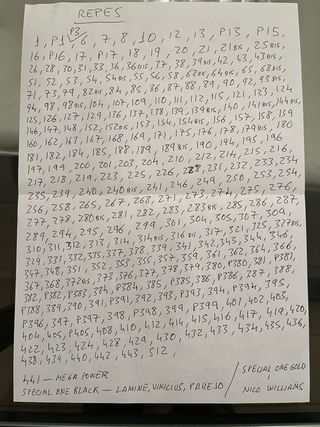 REPES
P3
1, P1, 6, 7, 8, 10, 12, 13, P13, P15,
16, P16, 17, P17, 18, 19, 20, 21, 21BIS, 25BIS,
26, 28, 30, 31, 38, 36, 36BIS, 37, 38, 39BIS, 42, 43, 43BIS,
51, 52, 53, 54, 54BIS, 55, 56, 58, 62BIS, 64BIS, 65, 68BIS,
71, 73, 79, 82BIS, 84, 85, 86, 87, 88, 89, 90, 92, 93,
94, 98, 98BIS, 104, 107, 109, 110, 111, 112, 115, 121, 123, 124
125, 126, 127, 129, 136, 137, 138, 139, 139BIS, 140, 141, 141BIS, 144BIS,
146, 147, 148, 152, 152BIS, 153, 154, 154BIS, 156, 157, 158, 159
160, 162, 163, 167, 168, 169, 171, 175, 176, 178, 179BIS, 180
181, 182, 184, 185, 188, 189, 189BIS, 190, 194, 195, 196
197, 199, 200, 201, 203, 204, 210, 212, 214, 215, 216,
217, 218, 219, 223, 225, 226, 228, 231, 232, 233, 234
235, 239, 240, 240BIS, 241, 246, 249, 250, 253, 254,
256, 258, 265, 267, 268, 271, 273, 274, 275, 276,
277, 278, 280BIS, 281, 282, 283, 283BIS, 285, 286, 287
289, 294, 295, 296, 299, 301, 304, 305, 307, 309,
310, 311, 312, 313, 314, 314BIS, 316BIS, 317, 321, 325, 327BIS,
329, 331, 332, 335, 337, 338, 339, 341, 342, 343, 344, 346,
347, 348, 351, 352, 353, 355, 357, 359, 361, 362, 364, 366,
367, 368, 372BIS, 373, 376, 377, 378, 379, 380, P380, 381, P381,
382, P382, P383, 384, P384, 385, P385, 386, P386, 387, 388,
P388, 389, 390, 391, P391, 392, 393, P393, 394, P394, 395,
P396, 397, P397, 398, P398, 399, P399, 401, 402, 403,
404, 405, P405, 408, 410, 412, 414, 415, 416, 417, 419, 420,
422, 423, 424, 428, 429, 430, 432, 433, 434, 435, 436,
438, 439, 440, 442, 443, 512,
441 — MEGA POWER
SPECIAL ONE BLACK — LAMINE, VINICIUS, PAREJO
SPECIAL ONE GOLD
NICO WILLIAMS